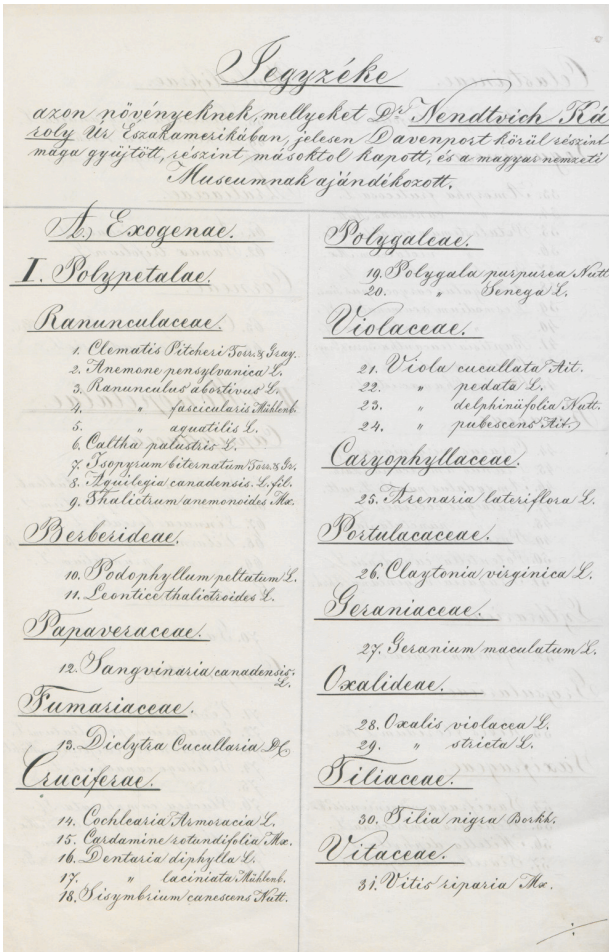 Jegyzéke
azon növényeknek, mellyeket Dr. Nendtvich Ká
roly Ur Északamerikában, jelesen Davenport körül részint
maga gyüjtött, részint másoktol kapott, és a magyar nemzeti
Museumnak ajándékozott.
A, Exogenae.
I. Polypetalae.
Ranunculaceae.
1. Clematis Pitcheri Torr. & Gray.
2. Anemone pensylvanica L.
3. Ranunculus abortivus L.
4. " fascicularis Mühlenb.
5. " aquatilis L.
6. Caltha palustris L.
7. Isopyrum biternatum Torr. & Gr.
8. Aquilegia canadensis. L. fil.
9. Thalictrum anemonoides Mx.
Berberideae.
10. Podophyllum peltatum L.
11. Leontice thalictroides L.
Papaveraceae.
12. Sangvinaria canadensis.
L.
Fumariaceae.
13. Diclytra Cucullaria DC
Cruciferae.
14. Cochlearia Armoracia L.
15. Cardamine rotundifolia Mx.
16. Dentaria diphylla L.
17. " laciniata Mühlenb.
18. Sisymbrium canescens Nutt.
Polygaleae.
19. Polygala purpurea Nutt.
20. " Senega L.
Violaceae.
21. Viola cucullata Ait.
22. " pedata L.
23. " delphiniifolia Nutt.
24. " pubescens Ait.
Caryophyllaceae.
25. Arenaria lateriflora L.
Portulacaceae.
26. Claytonia virginica L.
Geraniaceae.
27. Geranium maculatum L.
Oxalideae.
28. Oxalis violacea L.
29. " stricta L.
Tiliaceae.
30. Tilia nigra Borkh.
Vitaceae.
31. Vitis riparia Mx.